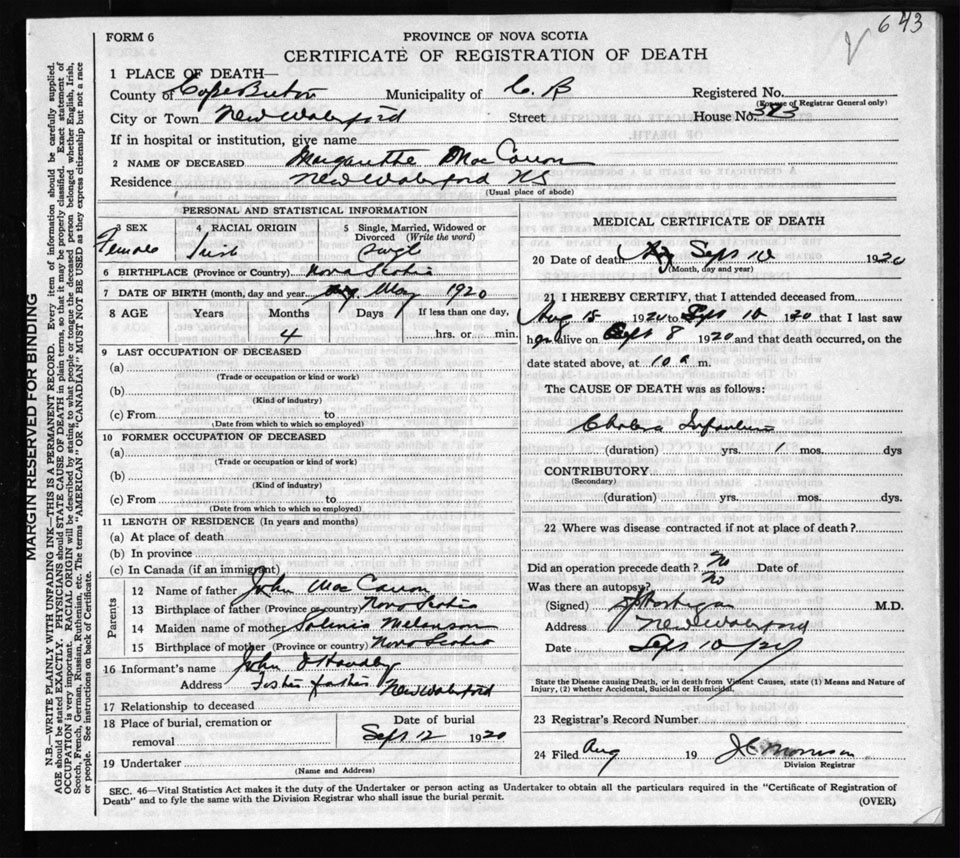 643
FORM 6
PROVINCE OF NOVA SCOTIA
CERTIFICATE OF REGISTRATION OF DEATH
1 PLACE OF DEATH—
County of Cape Breton Municipality of C. B Registered No.
(For use of Registrar General only)
City or Town New Waterford Street House No. 323
If in hospital or institution, give name
2 NAME OF DECEASED Margarette Mac Carron
Residence New Waterford NS
(Usual place of abode)
PERSONAL AND STATISTICAL INFORMATION
3 SEX 4 RACIAL ORIGIN 5 Single, Married, Widowed or Divorced (Write the word)
Female Irish Single
6 BIRTHPLACE (Province or Country) Nova Scotia
7 DATE OF BIRTH (month, day and year) May 1920
8 AGE Years Months Days If less than one day,
4 hrs. or min.
9 LAST OCCUPATION OF DECEASED
(a)
(Trade or occupation or kind or work)
(b)
(Kind of industry)
(c) From to
(Date from which to which so employed)
10 FORMER OCCUPATION OF DECEASED
(a)
(Trade or occupation or kind of work)
(b)
(Kind of industry)
(c) From to
(Date from which to which so employed)
11 LENGTH OF RESIDENCE (In years and months)
(a) At place of death
(b) In province
(c) In Canada (if an immigrant)
Parents
12 Name of father John Mac Carron
13 Birthplace of father (Province or country) Nova Scotia
14 Maiden name of mother Melanson
15 Birthplace of mother (Province or country) Nova Scotia
16 Informant's name John
Address Foster father New Waterford
17 Relationship to deceased
18 Place of burial, cremation or removal Date of burial
Sept 12 1920
19 Undertaker
(Name and Address)
MEDICAL CERTIFICATE OF DEATH
20 Date of death Sept 10 1920
(Month, day and year)
21 I HEREBY CERTIFY, that I attended deceased from
Aug 15 1920 to Sept 10 1920 that I last saw
her alive on Sept 8 1920 and that death occurred, on the
date stated above, at 10 a m.
The CAUSE OF DEATH was as follows:
Cholera Infantum
(duration) yrs. 1 mos. dys
CONTRIBUTORY
(Secondary)
(duration) yrs. mos. dys.
22 Where was disease contracted if not at place of death?
Did an operation precede death? No Date of
Was there an autopsy? No
(Signed) M.D.
Address New Waterford
Date Sept 10
State the Disease causing Death, or in death from Violent Causes, state (1) Means and Nature of
Injury, (2) whether Accidental, Suicidal or Homicidal.
23 Registrar's Record Number
24 Filed Aug 19 J C Morrison
Division Registrar
SEC. 46—Vital Statistics Act makes it the duty of the Undertaker or person acting as Undertaker to obtain all the particulars required in the "Certificate of Registration of
Death" and to fyle the same with the Division Registrar who shall issue the burial permit.
(OVER)
MARGIN RESERVED FOR BINDING
N.B.—WRITE PLAINLY WITH UNFADING INK—THIS IS A PERMANENT RECORD. Every item of information should be carefully supplied.
AGE should be stated EXACTLY. PHYSICIANS should STATE CAUSE OF DEATH in plain terms, so that it may be properly classified. Exact statement of
OCCUPATION is very important. RACIAL ORIGIN will be described by stating to what people or tongue the deceased person belonged whether English, Irish,
Scotch, French, German, Russian, Ruthenian, etc. The terms "AMERICAN" OR "CANADIAN" MUST NOT BE USED as they express citizenship but not a race
or people. See instructions on back of Certificate.